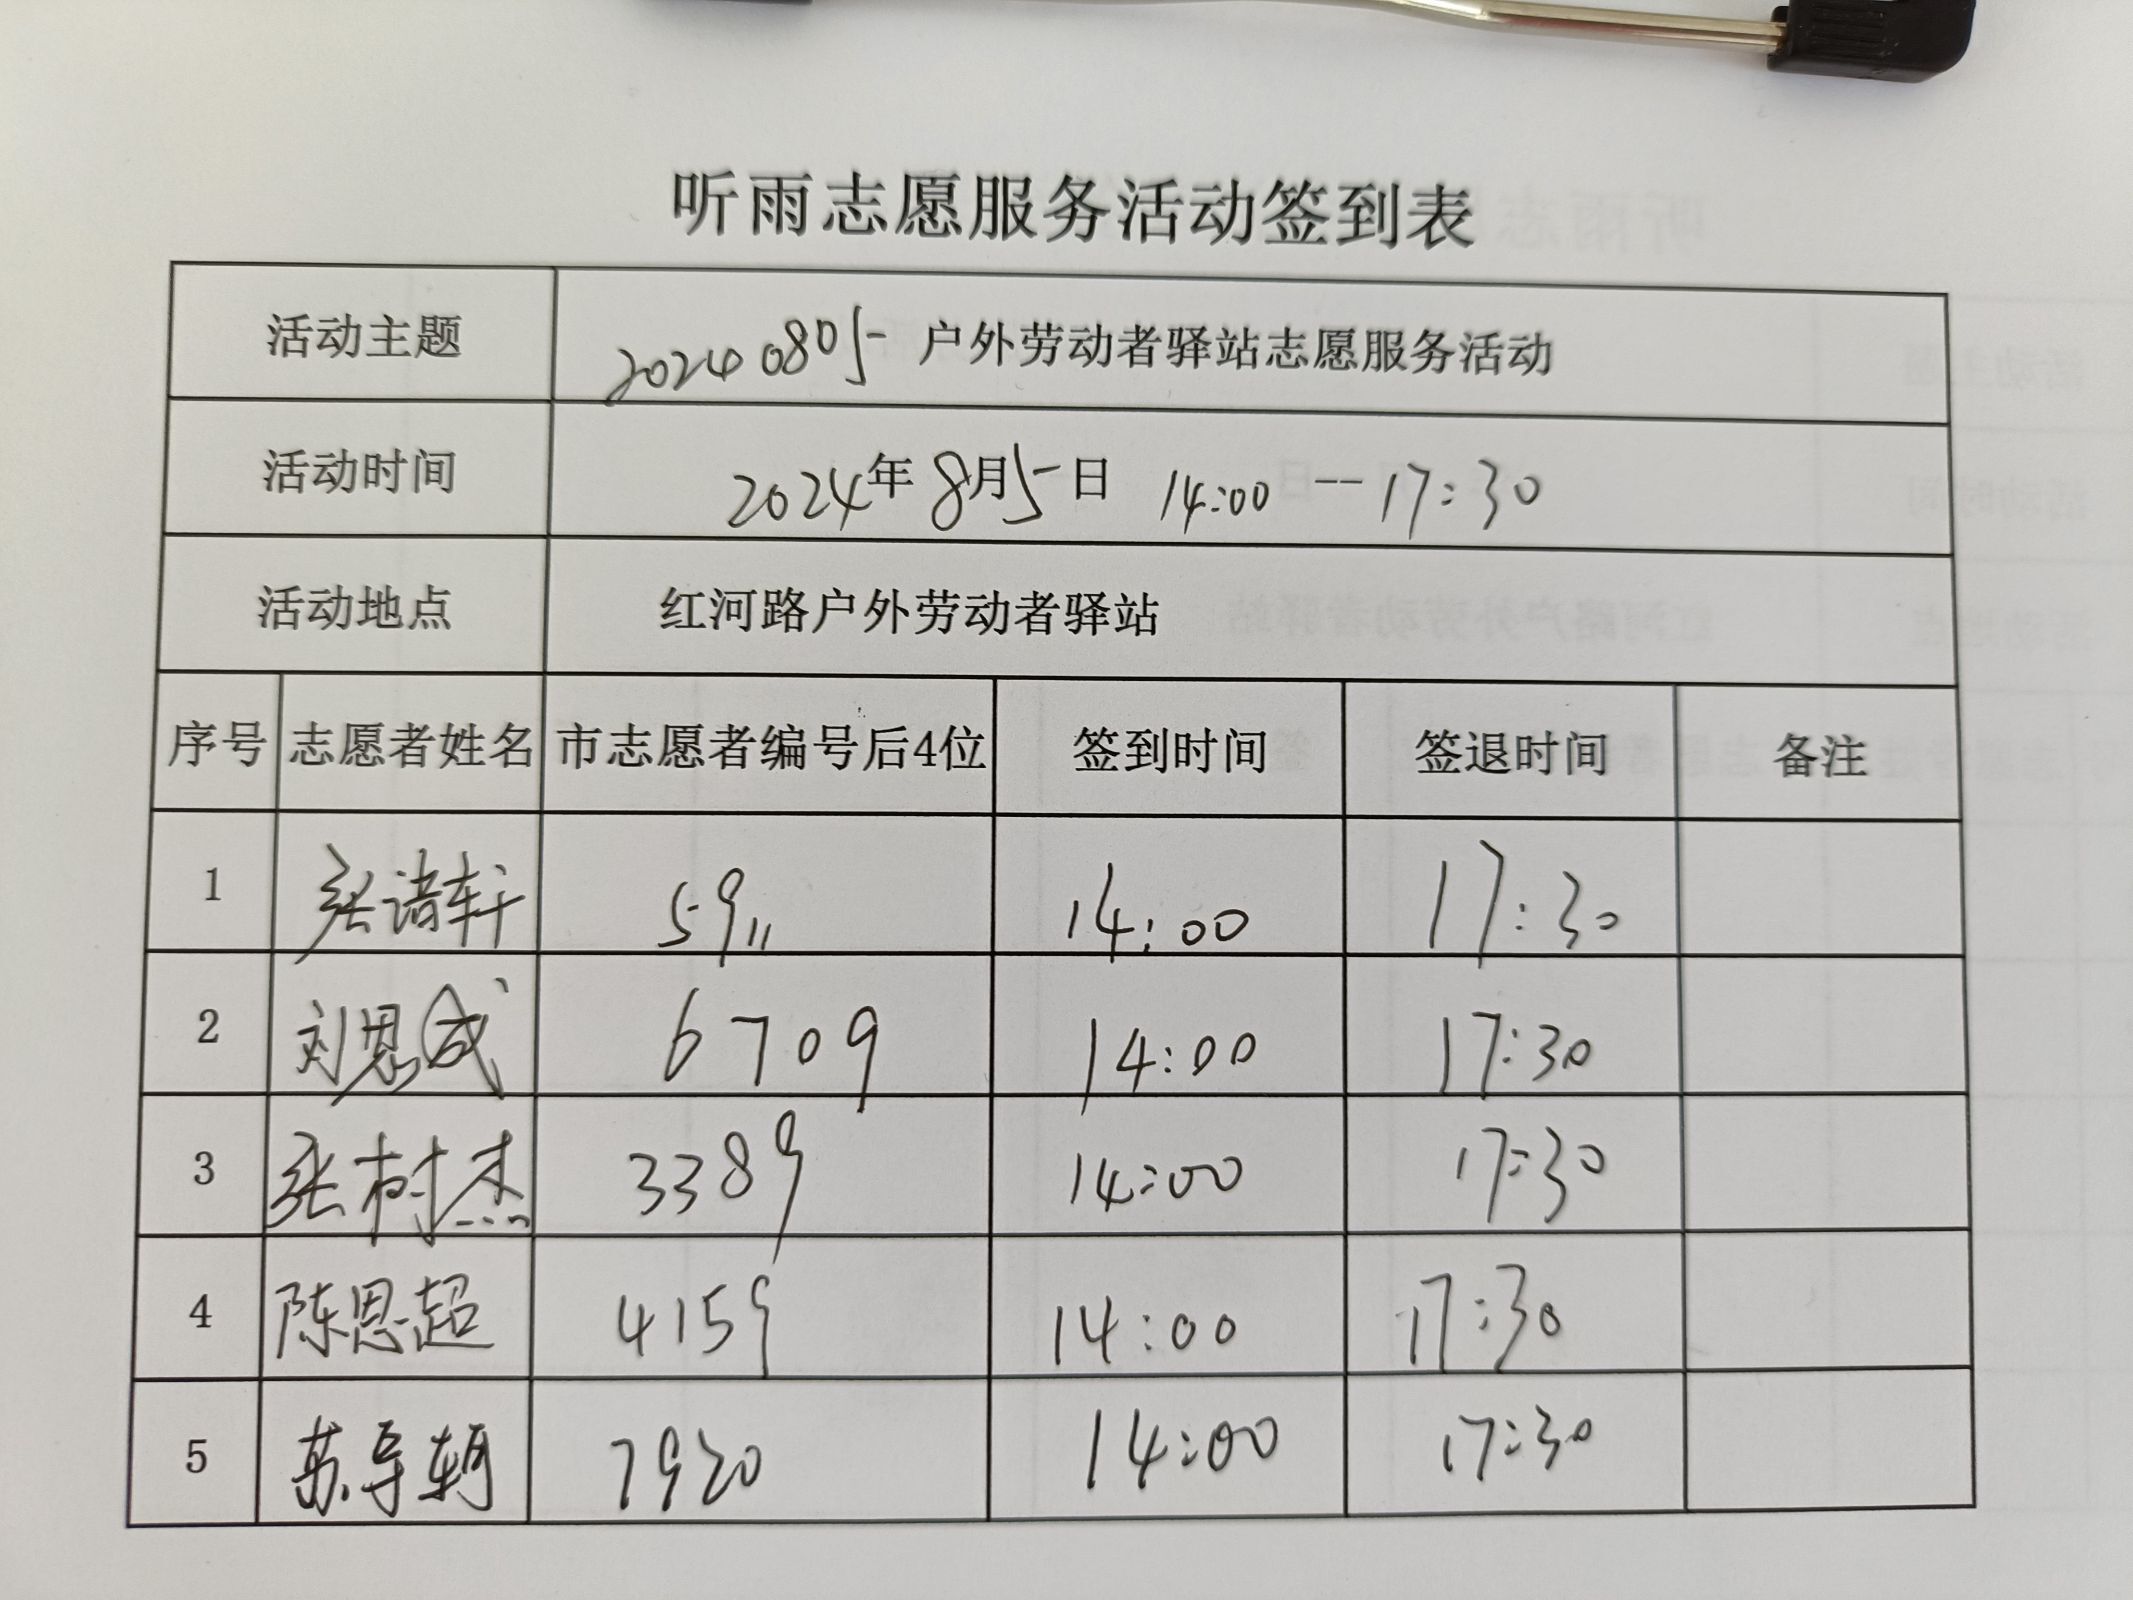 听雨志愿服务活动签到表
活动主题 20240805 户外劳动者驿站志愿服务活动
活动时间 2024年8月5日 14:00--17:30
活动地点 红河路户外劳动者驿站
序号 志愿者姓名 市志愿者编号后4位 签到时间 签退时间 备注
1 张诸轩 5911 14:00 17:30
2 刘恩成 6709 14:00 17:30
3 张树杰 3389 14:00 17:30
4 陈恩超 4159 14:00 17:30
5 苏 7920 14:00 17:30